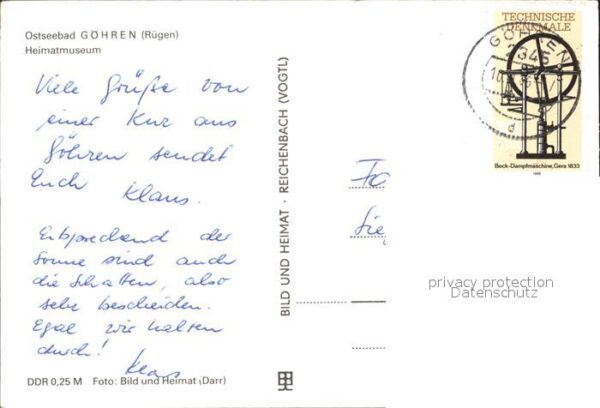 Ostseebad GÖHREN (Rügen)
Heimatmuseum
Viele Grüße von
einer Kur aus
Göhren sendet
Euch Klaus.
Entsprechend der
Sonne sind auch
die Schatten, also
sehr bescheiden.
Egal wir halten
durch!
Klaus
DDR 0,25 M Foto: Bild und Heimat (Darr)
BILD UND HEIMAT · REICHENBACH (VOGTL)
TECHNISCHE
DENKMALE
Bock-Dampfmaschine, Gera 1833
1985
GÖHREN
2345
d
Fa
Sie
privacy protection
Datenschutz